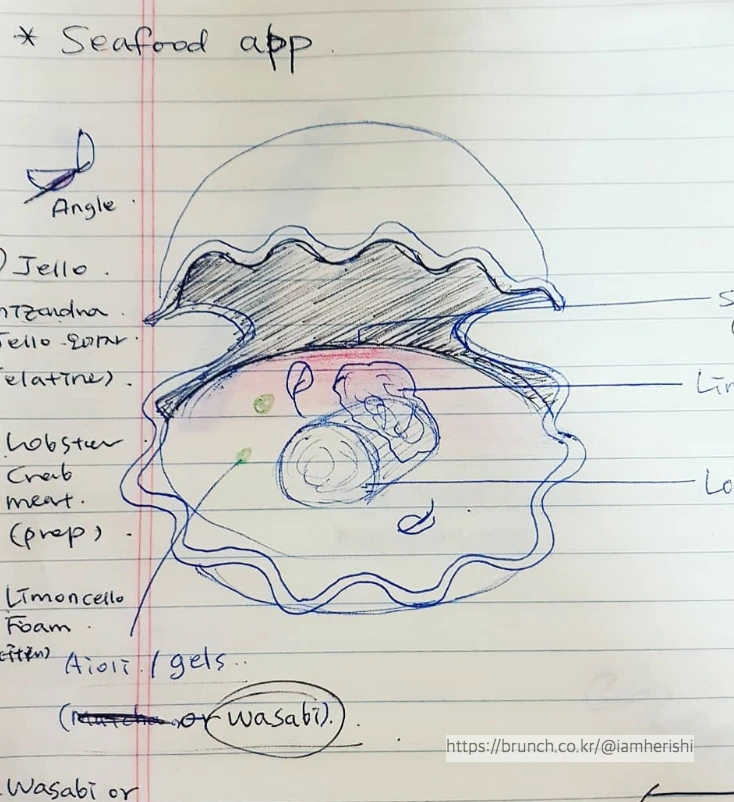 * Seafood app.
Angle
) Jello.
Jello
elatine).
Lobster
Crab
meat.
(prep)
Limoncello
Foam
Aioli / gels..
(Matcha or wasabi).
Lo
https://brunch.co.kr/@iamherishi
Wasabi or